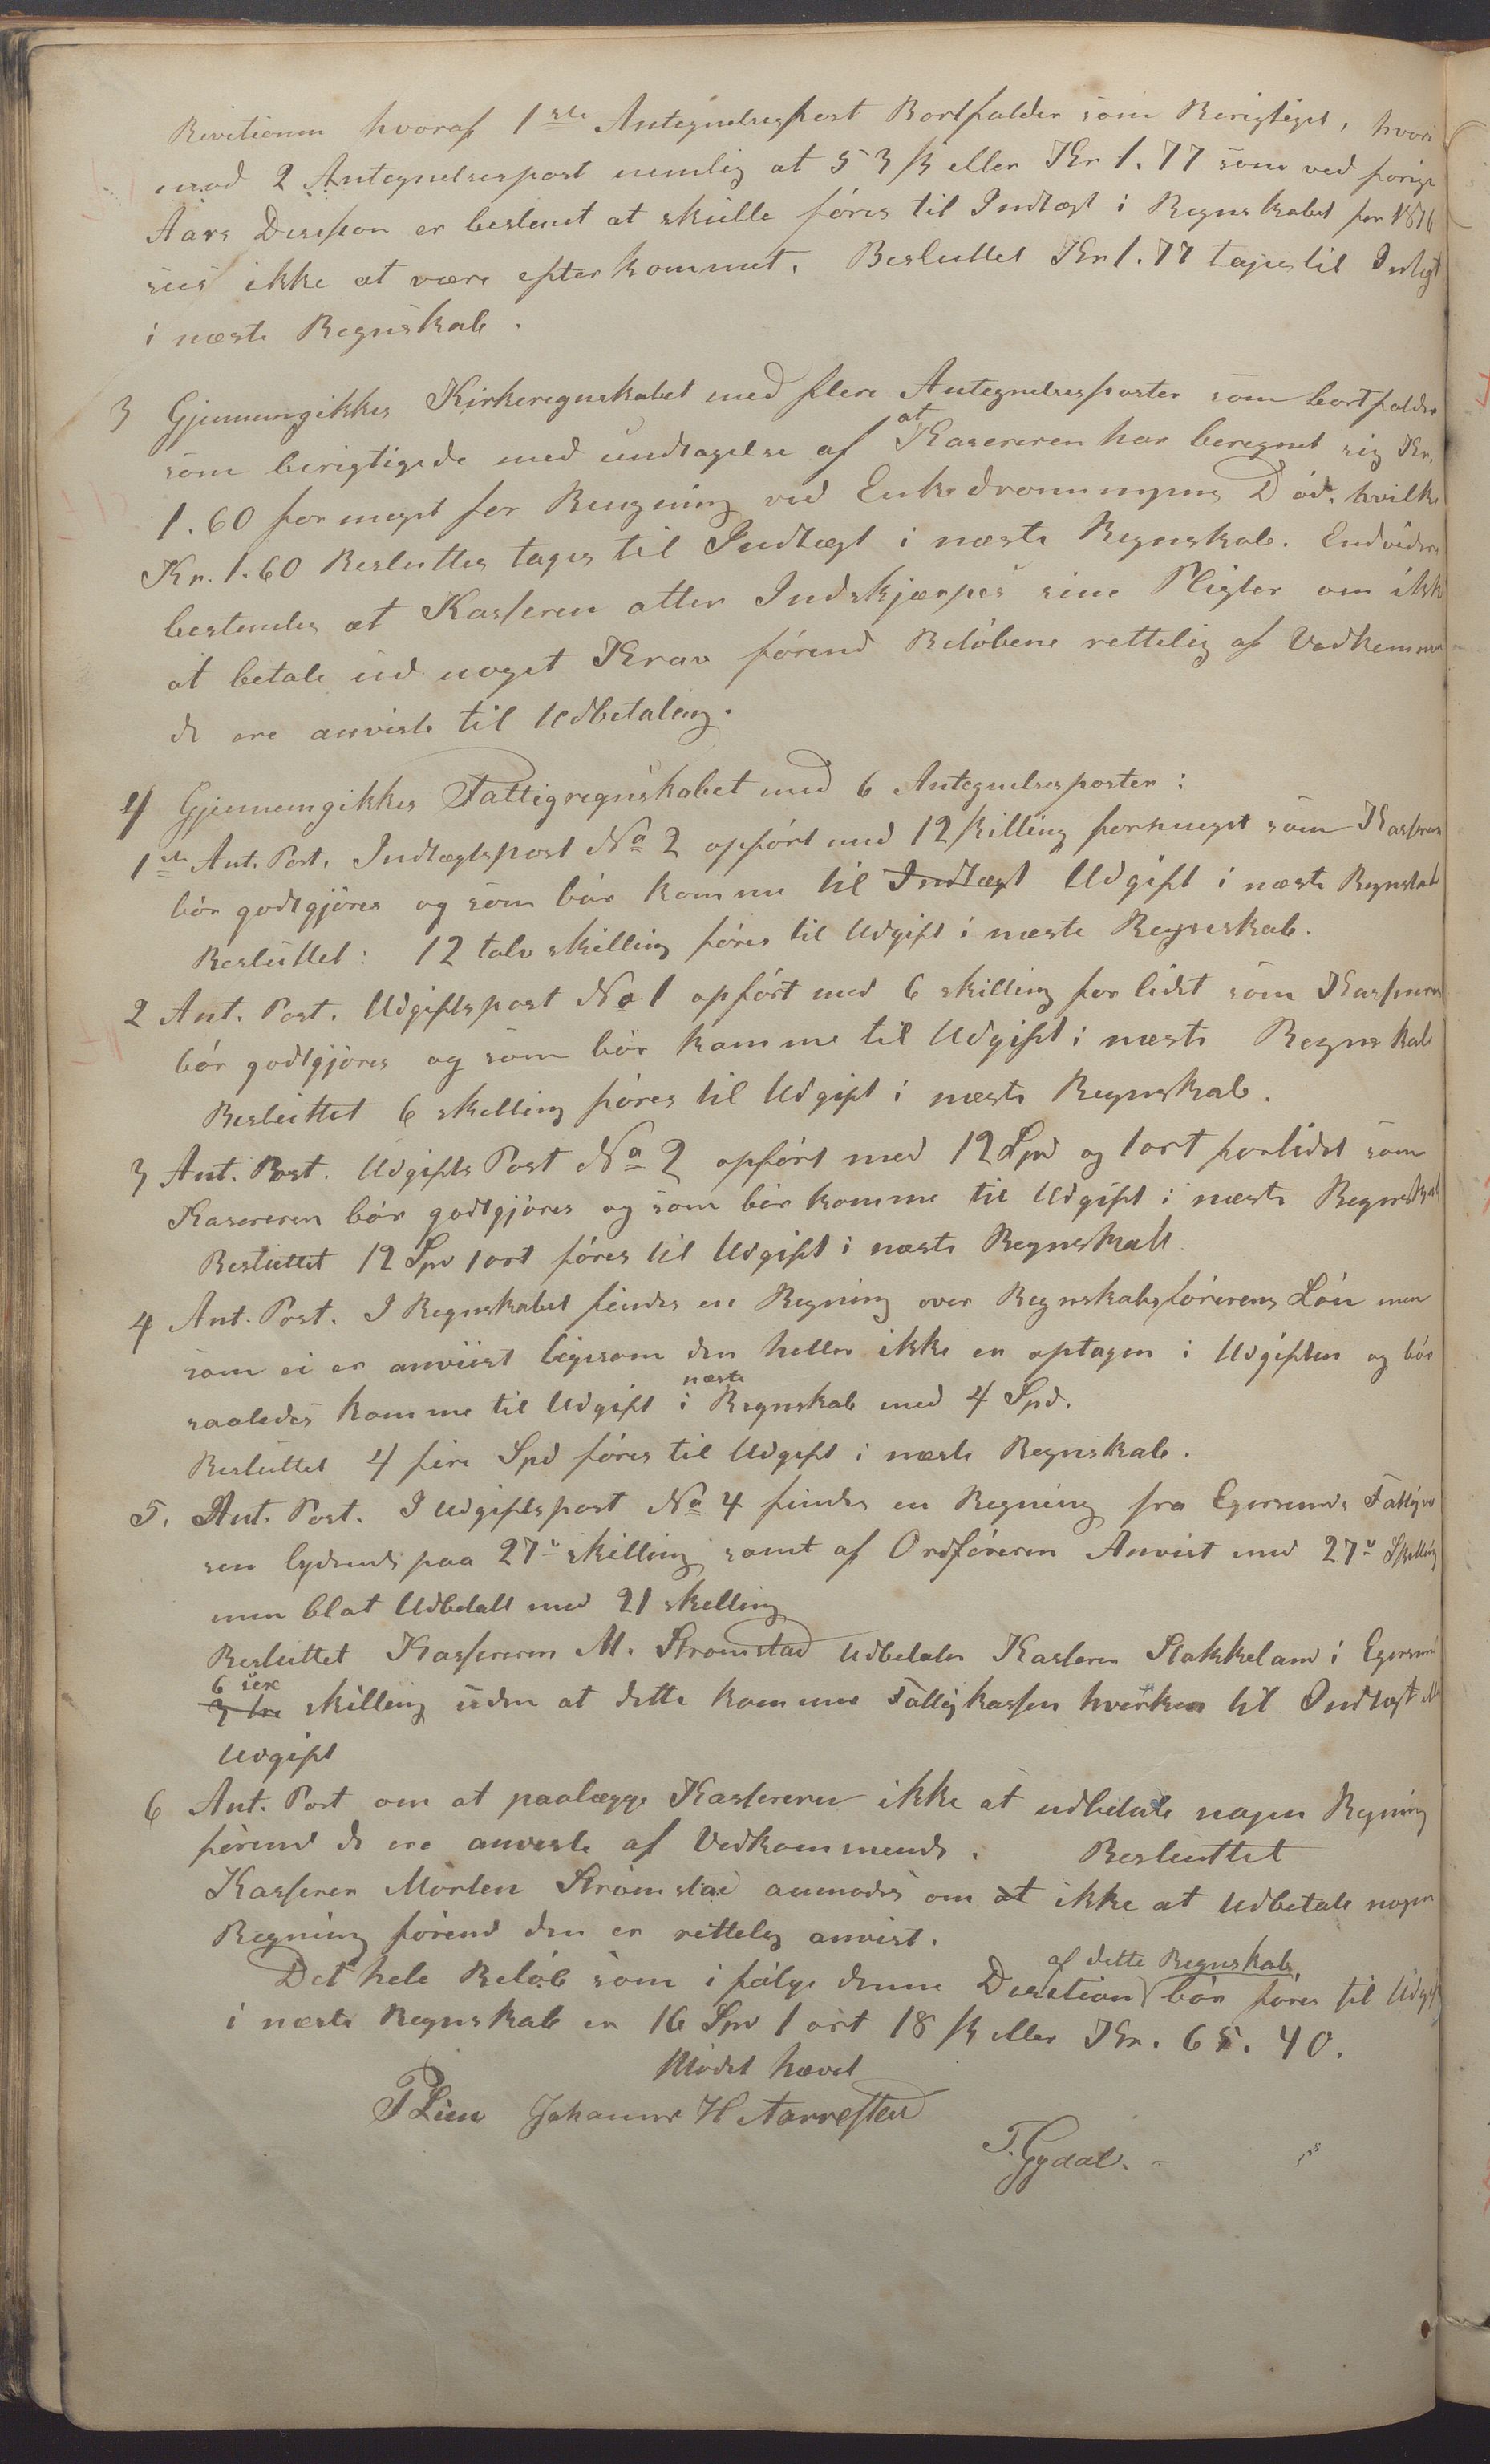 Revitionen hvoraf 1ste Antegnelsespost Bortfalder som Berigtiget, hvori
mod 2 Antegnelsespost nemlig at 53 ß eller Kr 1.77 som ved forige
Aars Desision er bestemt at skulle føres til Indtægt i Regnskabet for 1876
sees ikke at være efterkommet. Besluttet Kr 1.77 tages til Indtgt
i næste Regnskab.
3 Gjennemgikkes Kirkeregnskabet med flere Antegnelsesposter som bortfalder
som berigtigede med undtagelse af at Kasereren har beregnet sig Kr.
1.60 for meget for Ringning ved Enkedronningens Död, hvilke
Kr. 1.60 Besluttes tages til Indtægt i næste Regnskab. Endvidere
bestemtes at Kasseren atter Indskjærpes sine Pligter om ikke
at betale ud noget Krav förend Belöbene rettelig af Vedkommen
de ere anviste til Udbetaling.
4 Gjennemgikkes Fattigregnskabet med 6 Antegnelsesposter:
1ste Ant. Post. Indtægtspost No 2 opfört med 12 skilling formeget som Kasseren
bör godtgjöres og som bör komme til Indtægt Udgift i næste Regnskab
Besluttet: 12 tolv skilling föres til Udgift i næste Regnskab.
2 Ant. Post. Udgiftspost No 1 opfört med 6 skilling for lidet som Kasseren
bör godtgjöres og som bör komme til Udgift i næste Regnskab
Besluttet 6 skilling föres til Udgift i næste Regnskab.
3 Ant. Post. Udgifts Post No 2 opfört med 12 Spd og 1 ort forlidet som
Kasereren bör godtgjöres og som bör komme til Udgift i næste Regnskab
Besluttet 12 Spd 1 ort föres til Udgift i næste Regnskab
4 Ant. Post. I Regnskabet findes en Regning over Regnskabsförerens Lön men
som ei er anviist ligesom den heller ikke er optagen i Udgiften og bör
saaledes komme til Udgift i næste Regnskab med 4 Spd.
Besluttet 4 fire Spd föres til Udgift i næste Regnskab.
5. Ant. Post. I Udgiftspost No 4 findes en Regning fra Egersunds Fattigvæ
sen lydende paa 27 skilling samt af Ordföreren Anvist med 27 Skilling
men blot Udbetalt med 21 skilling
Besluttet Kassereren M. Strömstad Udbetaler Kasseren Stakkeland i Egersund
6 sex 3 tre skilling uden at dette kommer Fattigkassen hverken til Indtægt eller
Udgift
6 Ant. Post om at paalægge Kassereren ikke at udbetale nogen Regning
förend de ere anviste af Vedkommende. Besluttet
Kasserer Morten Strömstad anmodes om at ikke at Udbetale nogen
Regning förend den er rettelig anvist.
Det hele Belöb som i fölge denne Desition af dette Regnskab, bör föres til Udgift
i næste Regnskab er 16 Spd 1 ort 18 ß eller Kr. 65.40.
Mödet hævet
P Lien Johannes H Aarrestad
T. Gydal.